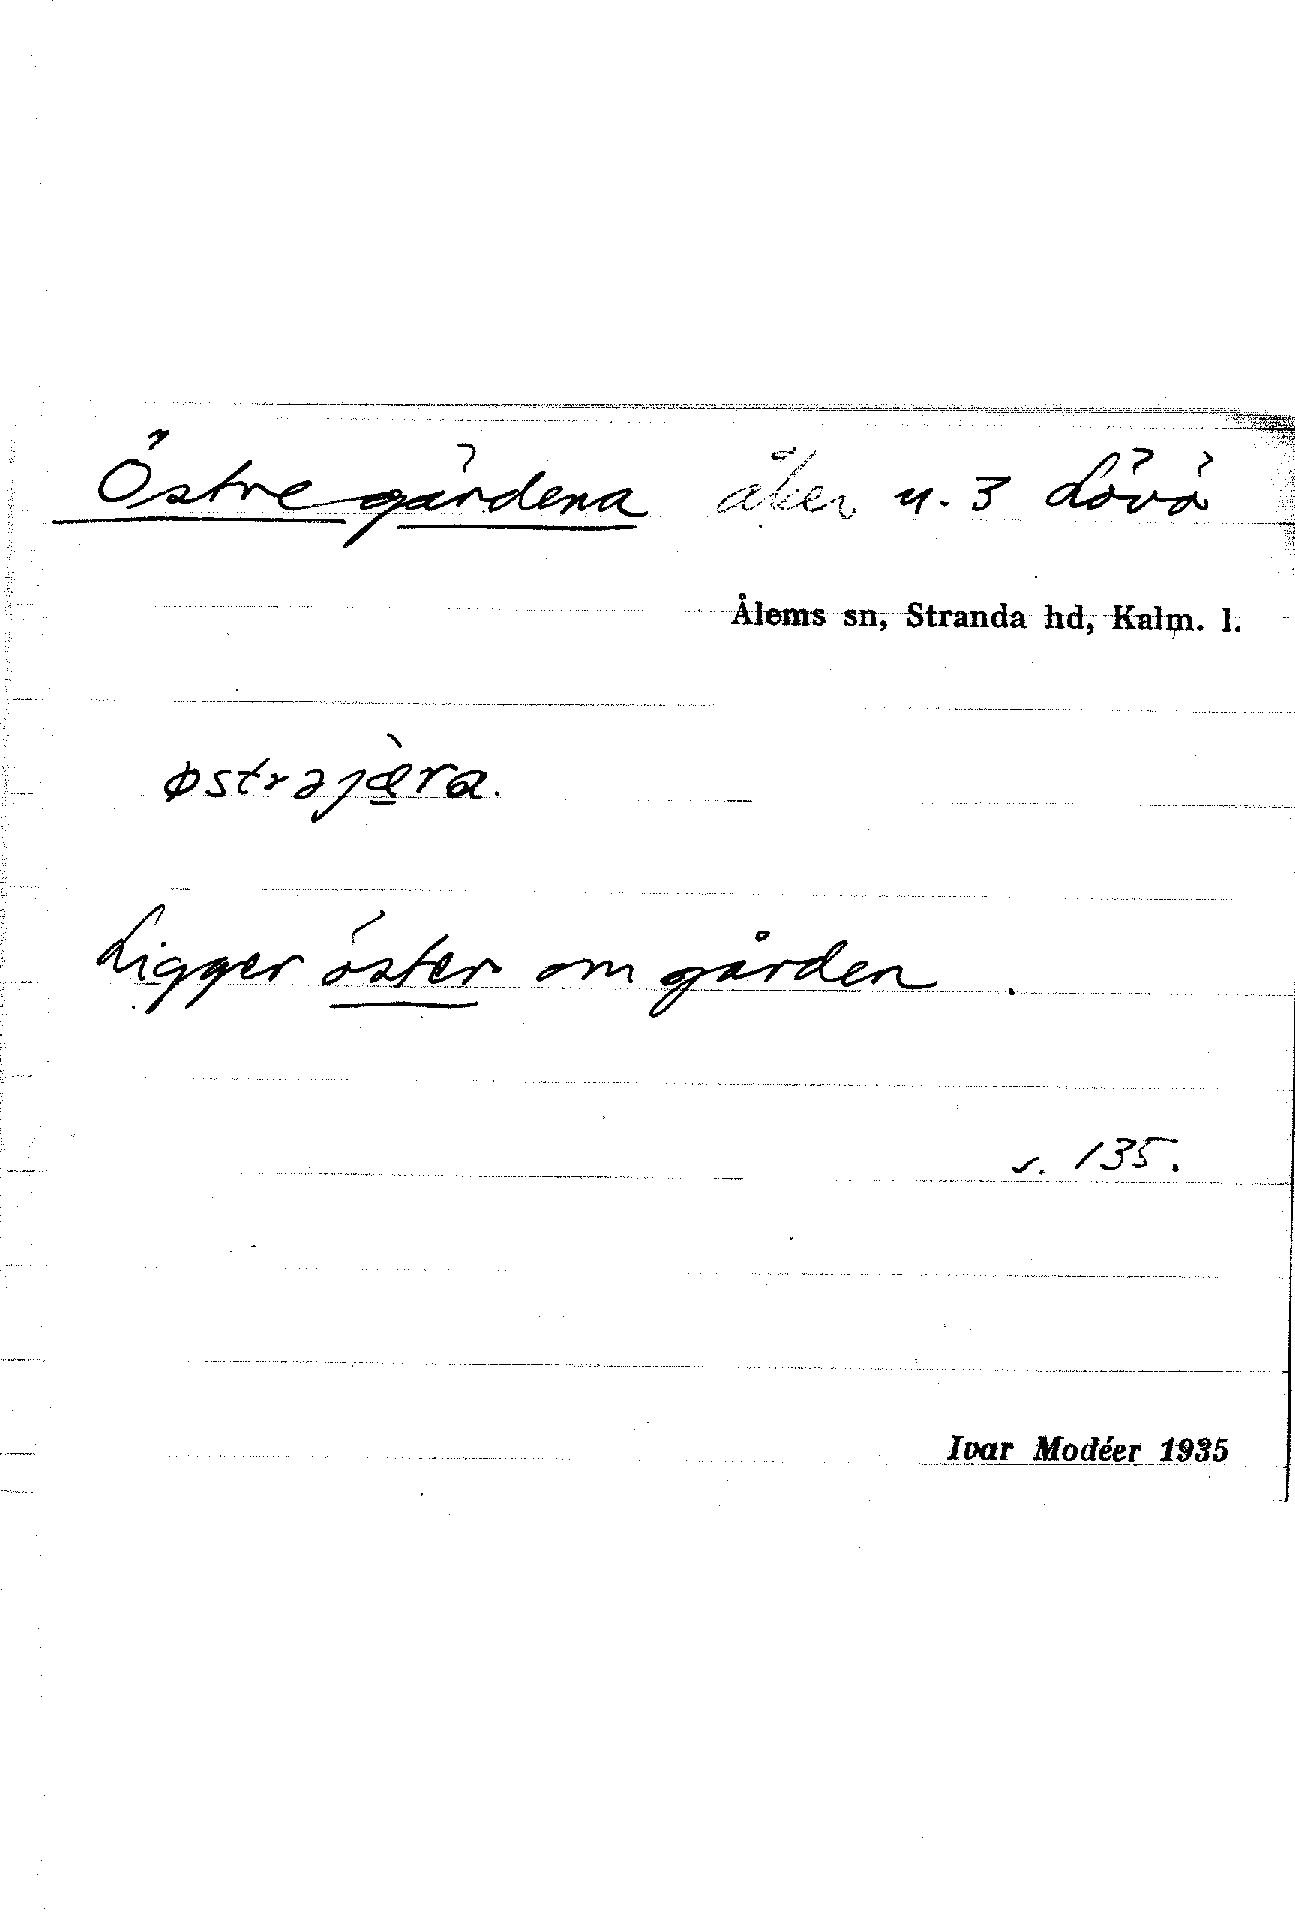 Östregärdena åker u. 3 Lövö
Ålems sn, Stranda hd, Kalm. l.
østrəjæ̀ra.
Ligger öster om gården.
s. 135.
Ivar Modéer 1935